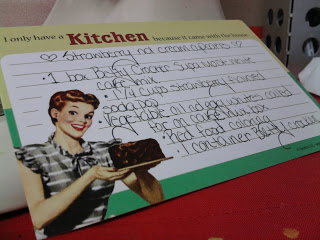 I only have a Kitchen because it came with the house
♡ Strawberry and cream cupcakes ♡
• 1 box Betty Crocker SuperMoist
cake mix
• 1 1/4 cups strawberry flavored
soda pop
• Vegetable oil and egg whites called
for on cake mix box
• Red food coloring
• 1 container Betty Crocker